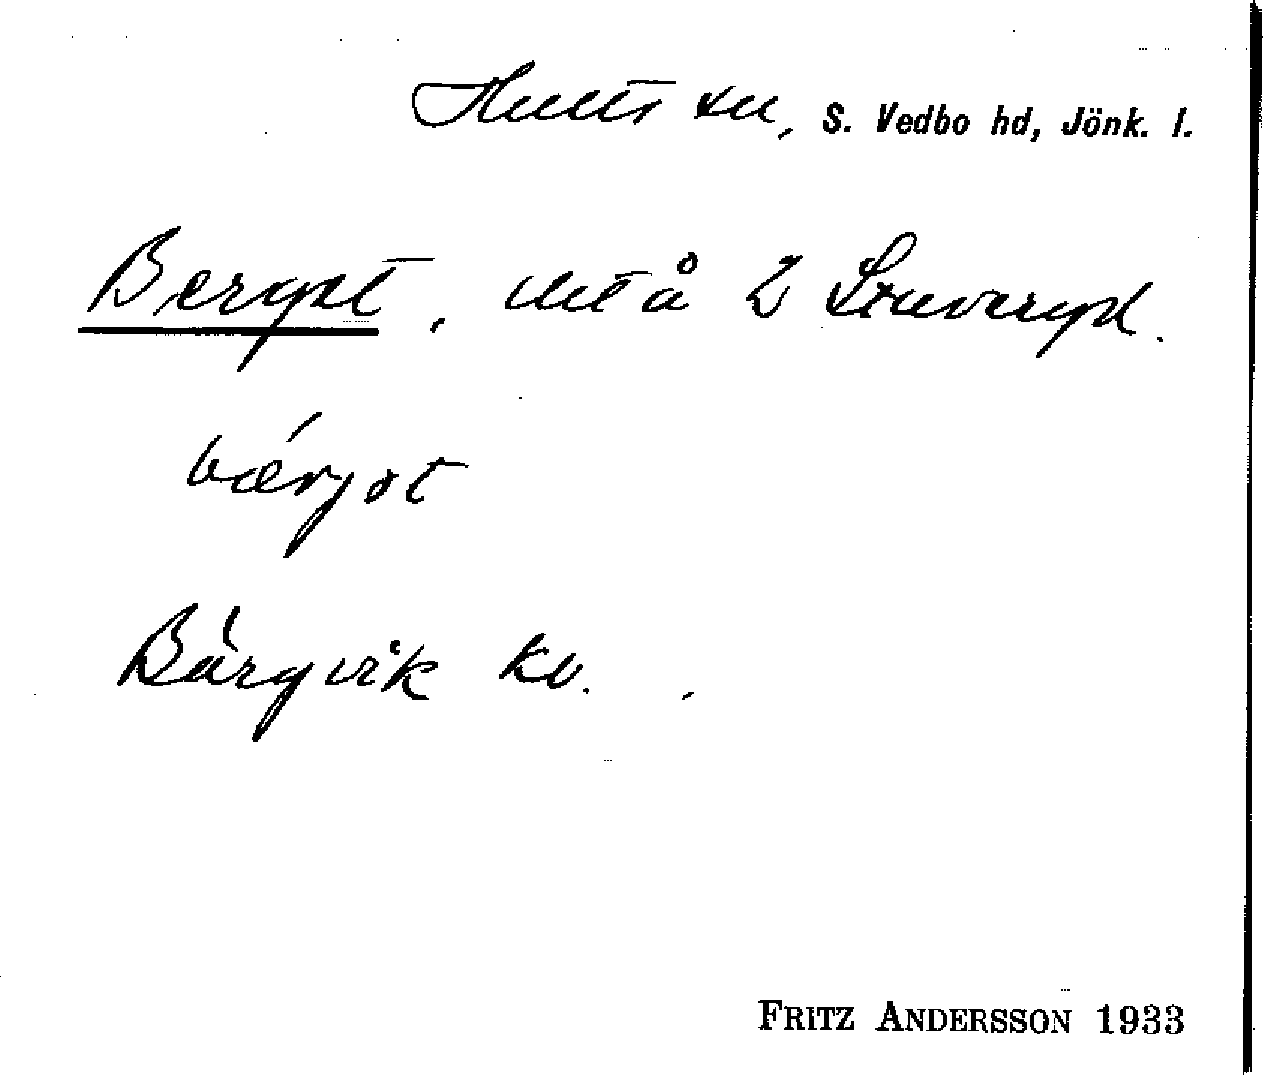 Hults sn, S. Vedbo hd, Jönk. l.
Bergst, utå 2 Stuveryd.
bærjst
Bärgvik kv.
FRITZ ANDERSSON 1933